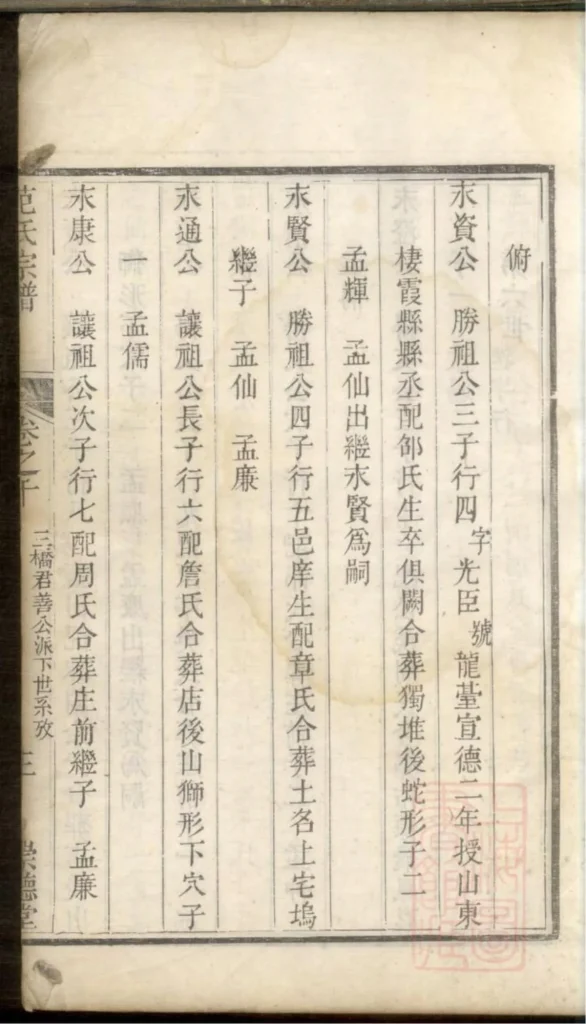 俯
永資公　勝祖公三子行四字光臣號龍臺宣德二年授山東
棲霞縣縣丞配邰氏生卒俱闕合葬獨堆後蛇形子二
孟輝　孟仙出繼永賢爲嗣
永賢公　勝祖公四子行五邑庠生配章氏合葬土名上宅塢
繼子　孟仙　孟廉
永通公　讓祖公長子行六配詹氏合葬店後山獅形下穴子
一　孟儒
永康公　讓祖公次子行七配周氏合葬庄前繼子　孟廉
范氏宗譜　卷之　三橋君善公派下世系攷　三　崇德堂